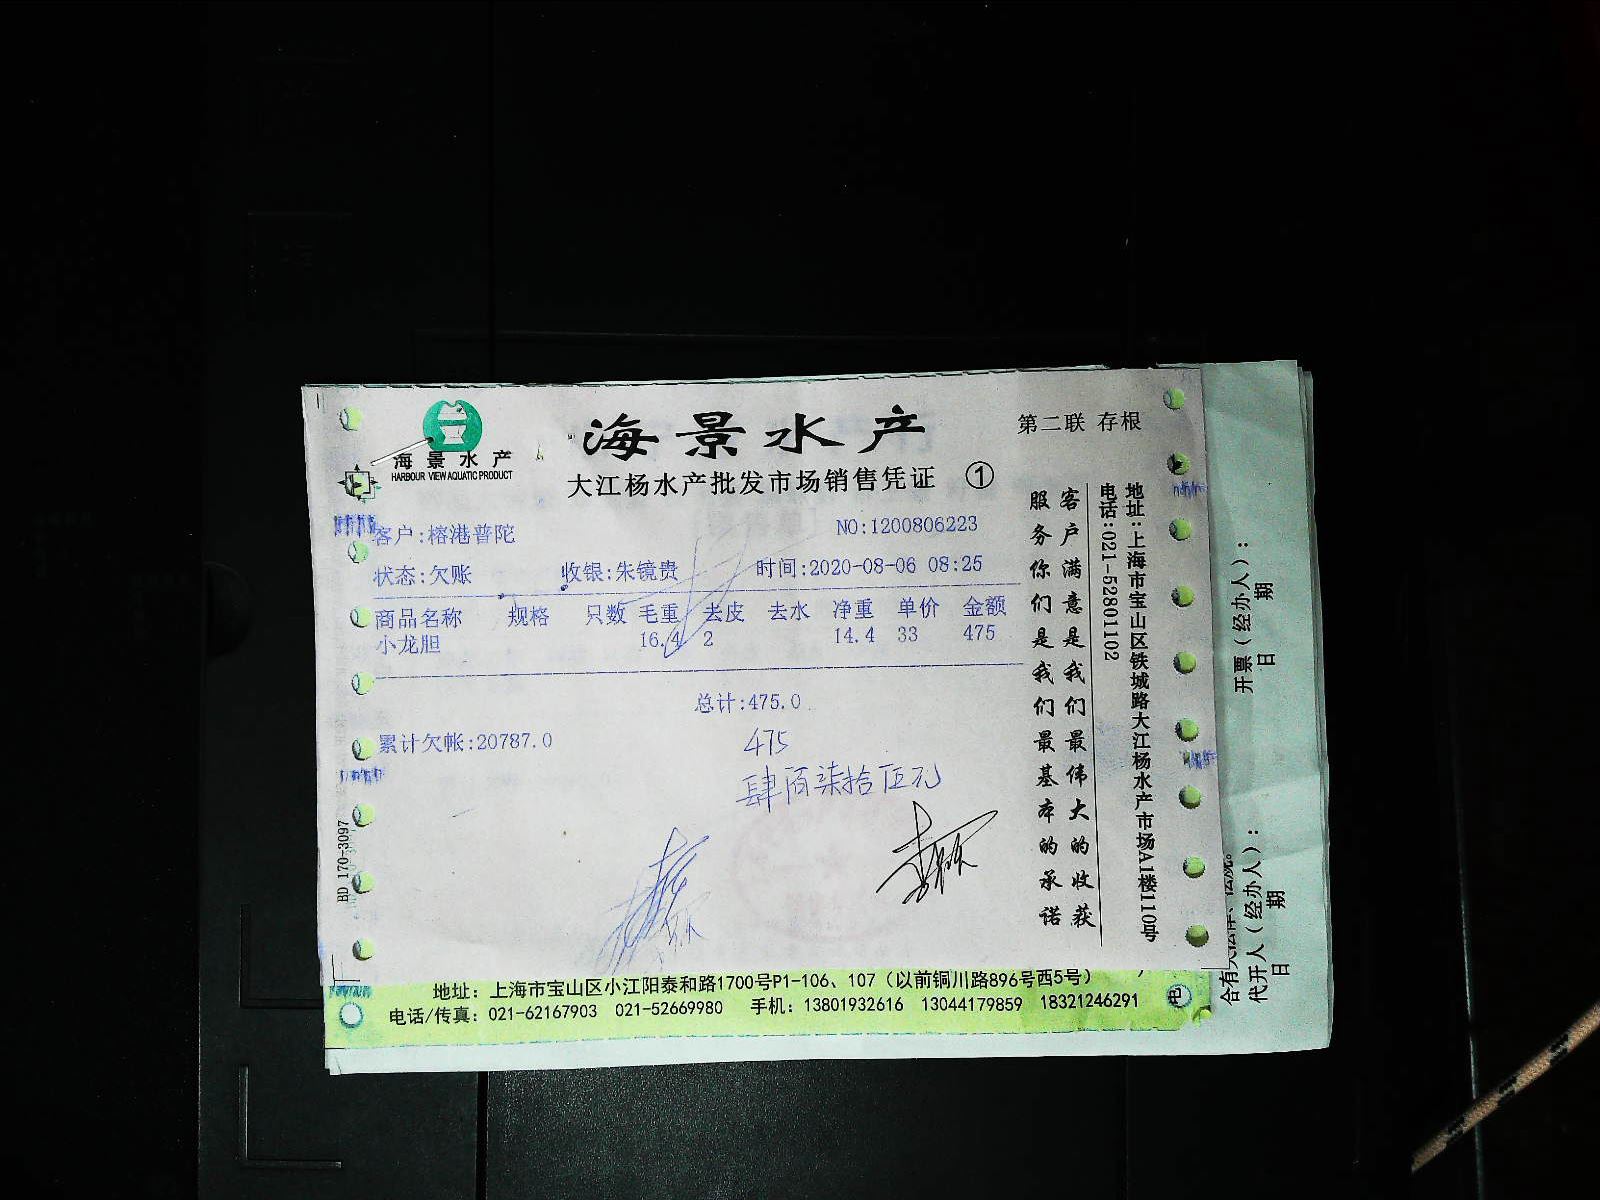 海景水产
HARBOUR VIEW AQUATIC PRODUCT
海景水产
大江杨水产批发市场销售凭证 ①
第二联 存根
客户:榕港普陀
NO:1200806223
状态:欠账 收银:朱镜贵 时间:2020-08-06 08:25
商品名称 规格 只数 毛重 去皮 去水 净重 单价 金额
小龙胆 16.4 2 14.4 33 475
总计:475.0
累计欠帐:20787.0
475
肆佰柒拾伍元
BD 170-3097
客户满意是我们最伟大的收获
服务你们是我们最基本的承诺
地址:上海市宝山区铁城路大江杨水产市场A1楼110号
电话:021-52801102
地址: 上海市宝山区小江阳泰和路1700号P1-106、107 (以前铜川路896号西5号)
电话/传真: 021-62167903 021-52669980 手机: 13801932616 13044179859 18321246291
电
开票(经办人):
日 期
代开人(经办人):
日 期